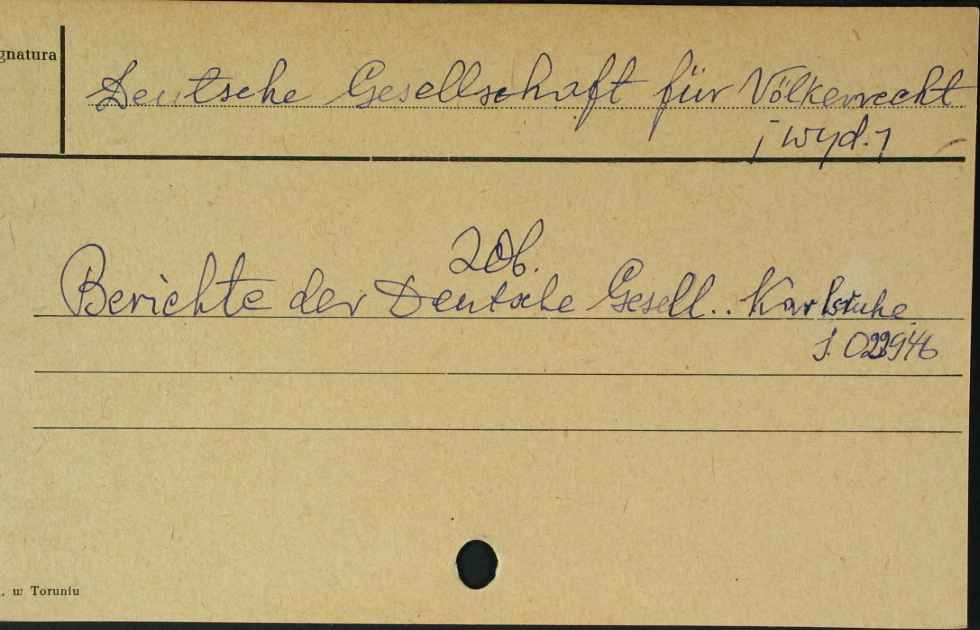 gnatura
Deutsche Gesellschaft für Völkerrecht
[wyd.]
Zob.
Berichte der Deutsche Gesell.. Karlsruhe.
w Toruniu